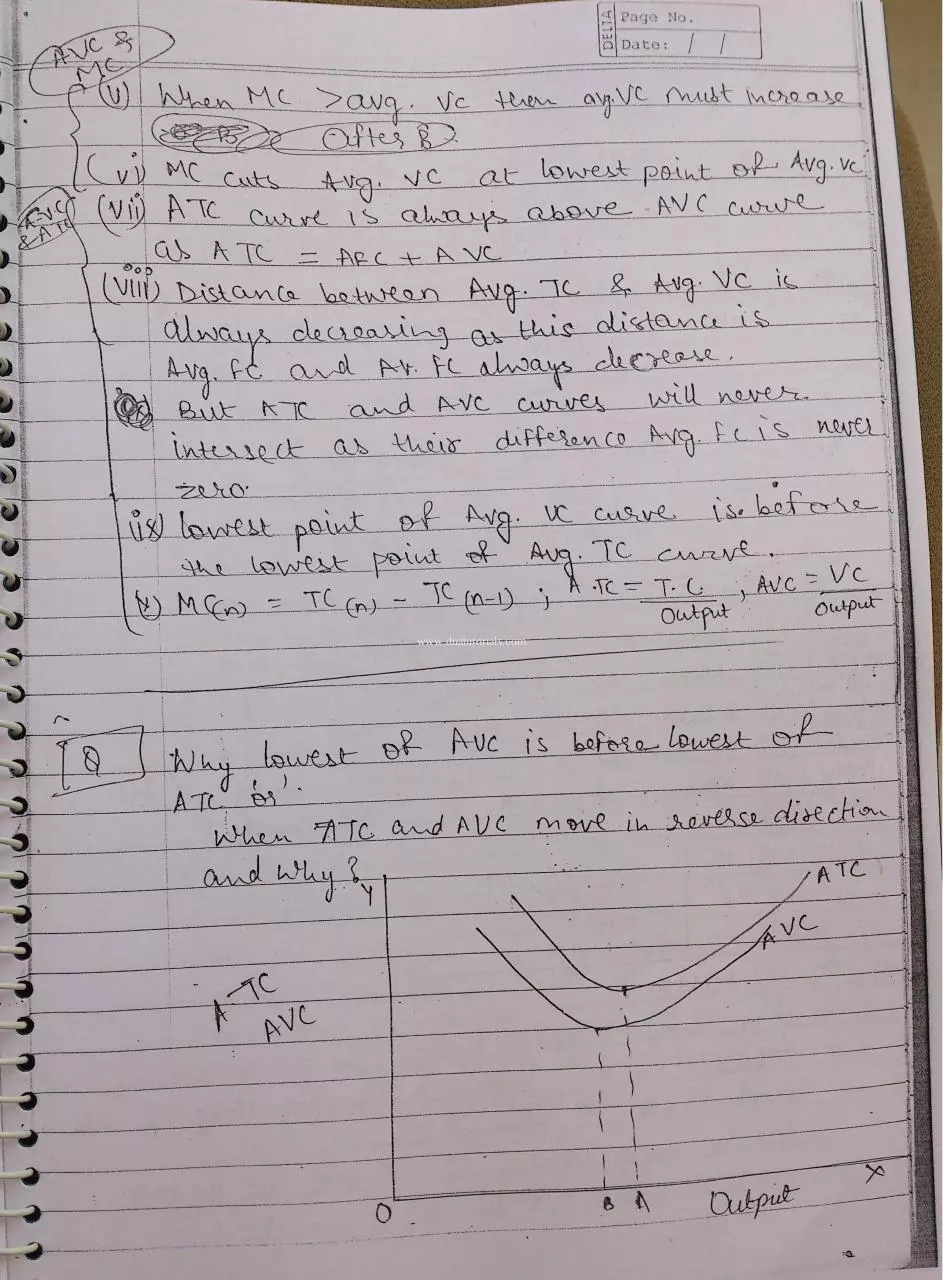 DELTA
Page No.
Date: / /
AVC &
MC
(v) When MC > avg. VC then avg. VC must increase
After B.
(vi) MC cuts Avg. VC at lowest point of Avg. VC
AVC
& ATC
(vii) ATC curve is always above AVC curve
as ATC = AFC + AVC
(viii) Distance between Avg. TC & Avg. VC is
always decreasing as this distance is
Avg. FC and Av. FC always decrease.
But ATC and AVC curves will never
intersect as their difference Avg. FC is never
zero.
(ix) lowest point of Avg. VC curve is before
the lowest point of Avg. TC curve.
(x) MC(n) = TC(n) - TC(n-1) ; A.TC = T.C. / Output , AVC = VC / Output
Q Why lowest of AVC is before lowest of
ATC 'or'
When ATC and AVC move in reverse direction
and why?
Y
ATC
AVC
ATC
AVC
O
B
A
Output
X